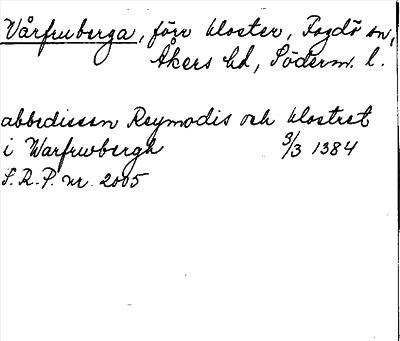 Vårfruberga, förr kloster, Fogdö sn,
Åkers hd, Söderm. l.
abbedissan Reymodis och klostret
i Warfrwbergh 3/3 1384
S.R.P. nr. 2005